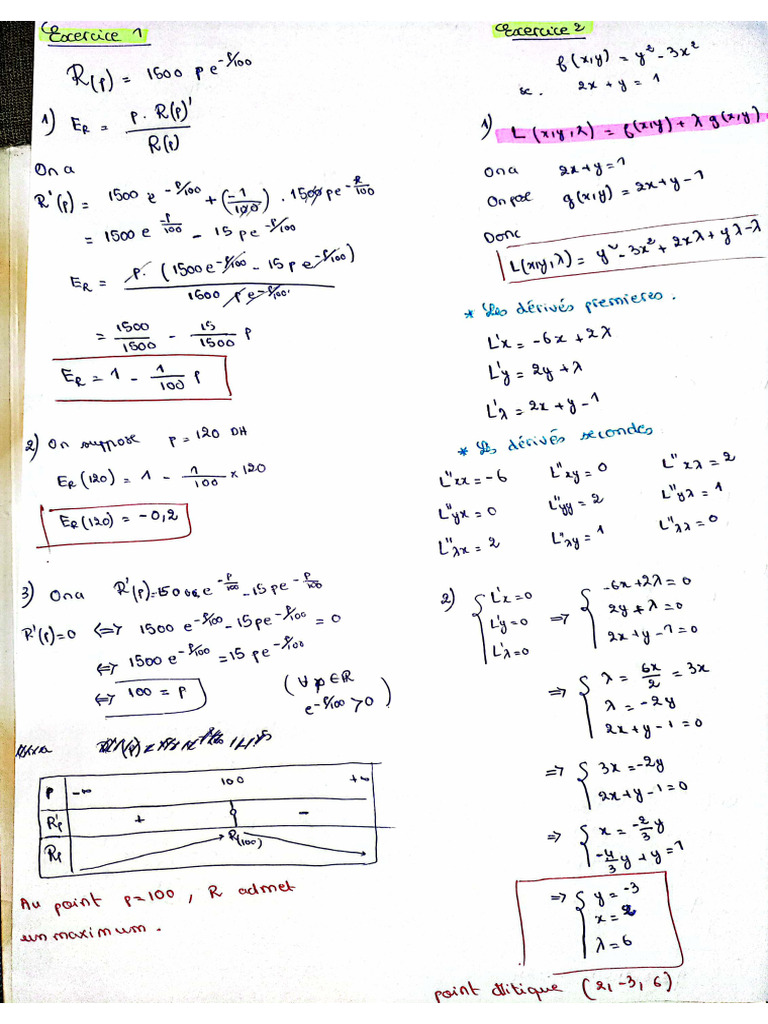 Exercice 1
R(p) = 1500 p e^-p/100
1) E_R = p. R(p)' / R(p)
On a
R'(p) = 1500 e^-p/100 + (-1/100) . 1500 p e^-p/100
= 1500 e^-p/100 - 15 p e^-p/100
E_R = p. (1500 e^-p/100 - 15 p e^-p/100) / 1500 p e^-p/100
= 1500/1500 - 15/1500 p
E_R = 1 - 1/100 p
2) On suppose p = 120 DH
E_R(120) = 1 - 1/100 x 120
E_R(120) = -0,2
3) On a R'(p) = 1500 e^-p/100 - 15 p e^-p/100
R'(p) = 0 <=> 1500 e^-p/100 - 15 p e^-p/100 = 0
<=> 1500 e^-p/100 = 15 p e^-p/100
<=> 100 = p (∀ p ∈ R e^-p/100 > 0)
P -∞ 100 +∞
R'p + 0 -
Rp R(100)
Au point p=100, R admet
un maximum.
Exercice 2
f(x,y) = y² - 3x²
sc. 2x + y = 1
1) L(x,y,λ) = f(x,y) + λ g(x,y)
On a 2x+y=1
On pose g(x,y) = 2x+y-1
Donc
L(x,y,λ) = y² - 3x² + 2xλ + yλ - λ
* Les dérivés premieres.
L'x = -6x + 2λ
L'y = 2y + λ
L'λ = 2x + y - 1
* Les dérivés secondes
L''xx = -6 L''xy = 0 L''xλ = 2
L''yx = 0 L''yy = 2 L''yλ = 1
L''λx = 2 L''λy = 1 L''λλ = 0
2) { L'x=0 => { -6x+2λ=0
L'y=0 2y+λ=0
L'λ=0 2x+y-1=0
=> { λ = 6x/2 = 3x
λ = -2y
2x+y-1=0
=> { 3x = -2y
2x+y-1=0
=> { x = -2/3 y
-4/3 y + y = 1
=> { y = -3
x = 2
λ = 6
point critique (2, -3, 6)